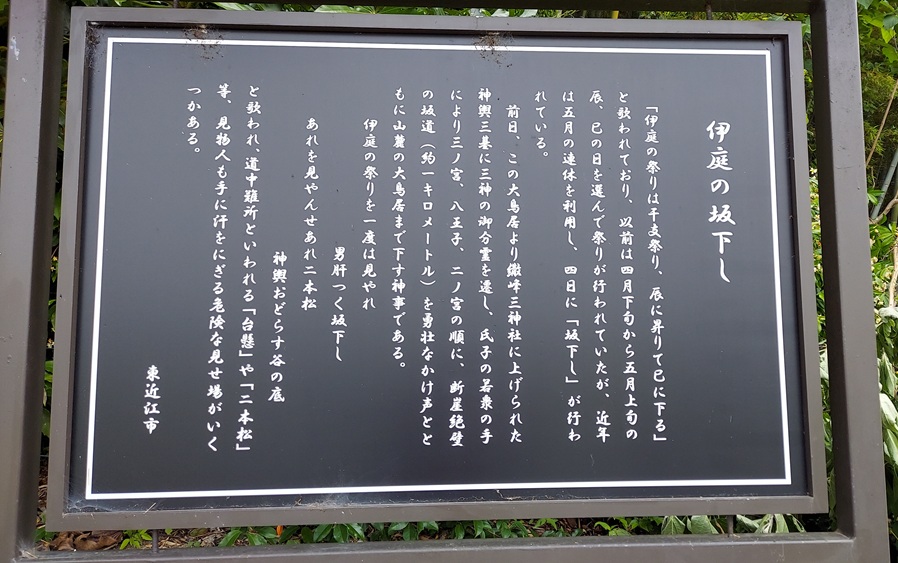 伊庭の坂下し
「伊庭の祭りは干支祭り、辰に昇りて巳に下る」
と歌われており、以前は四月下旬から五月上旬の
辰、巳の日を選んで祭りが行われていたが、近年
は五月の連休を利用し、四日に「坂下し」が行わ
れている。
前日、この大鳥居より繖峰三神社に上げられた
神輿三基に三神の御分霊を遷し、氏子の若衆の手
により三ノ宮、八王子、二ノ宮の順に、断崖絶壁
の坂道（約一キロメートル）を勇壮なかけ声とと
もに山麓の大鳥居まで下す神事である。
伊庭の祭りを一度は見やれ
男肝つく坂下し
あれを見やんせあれ二本松
神輿おどらす谷の底
と歌われ、道中難所といわれる「台懸」や「二本松」
等、見物人も手に汗をにぎる危険な見せ場がいく
つかある。
東近江市